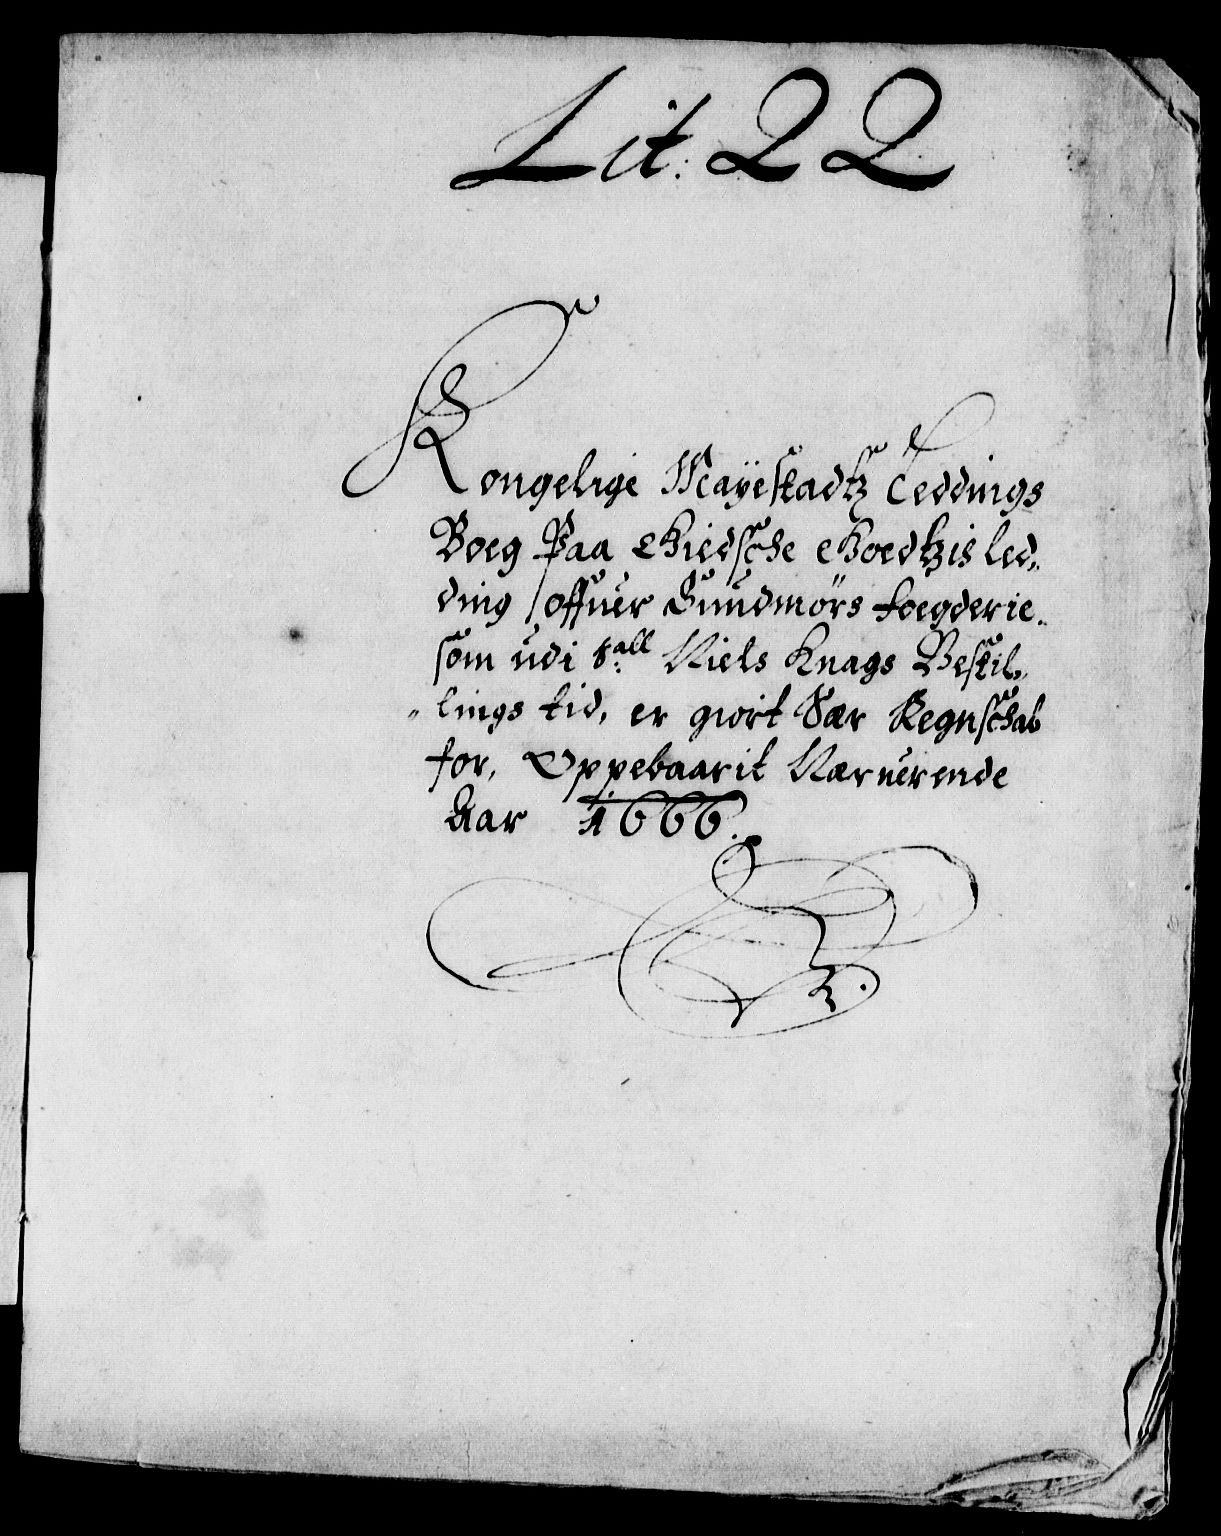 Lit. QQ
Kongelige Mayestadtz Leddings
Boeg Paa Giedsche Goedtzis led,,
ding offuer Sundmørs foegderie.
som udi S:all Niels Knags Bestil,,
„lings tid, er giort Sær Regnschab
for, Oppebaarit Næruerende
Aar 1666.